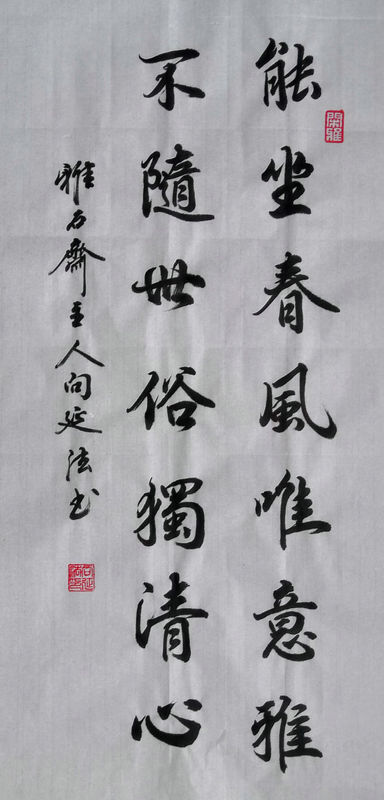 能坐春風唯意雅
閑雅
不隨世俗獨清心
雅石齋主人向延法書